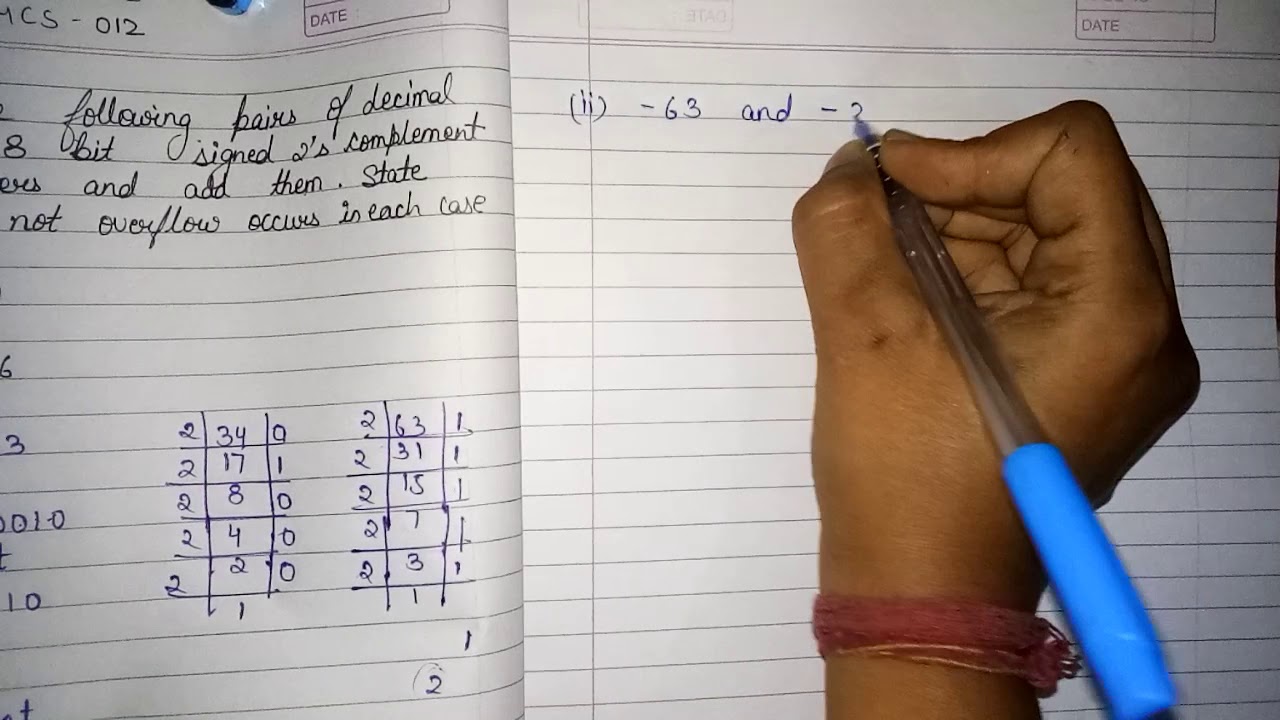 MCS - 012
DATE
following pairs of decimal
8 bit signed 2's complement
and add them. State
not overflow occurs in each case
6
3
0010
10
2 34 0
2 17 1
2 8 0
2 4 0
2 2 0
1
2 63 1
2 31 1
2 15 1
2 7 1
2 3 1
1
1
2
DATE
DATE
(ii) -63 and -